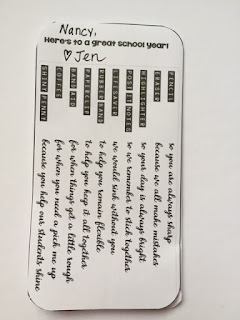 Nancy,
Here's to a great school year!
♡ Jen
PENCIL so you are always sharp
ERASER because we all make mistakes
HIGHLIGHTER so your day is always bright
POST IT NOTES so we remember to stick together
LIFESAVER we would sink without you
RUBBER BAND to help you remain flexible
PAPERCLIP to help you keep it all together
BAND AID for when things get a little rough
COFFEE for when you need a pick me up
SHINY PENNY because you help our students shine